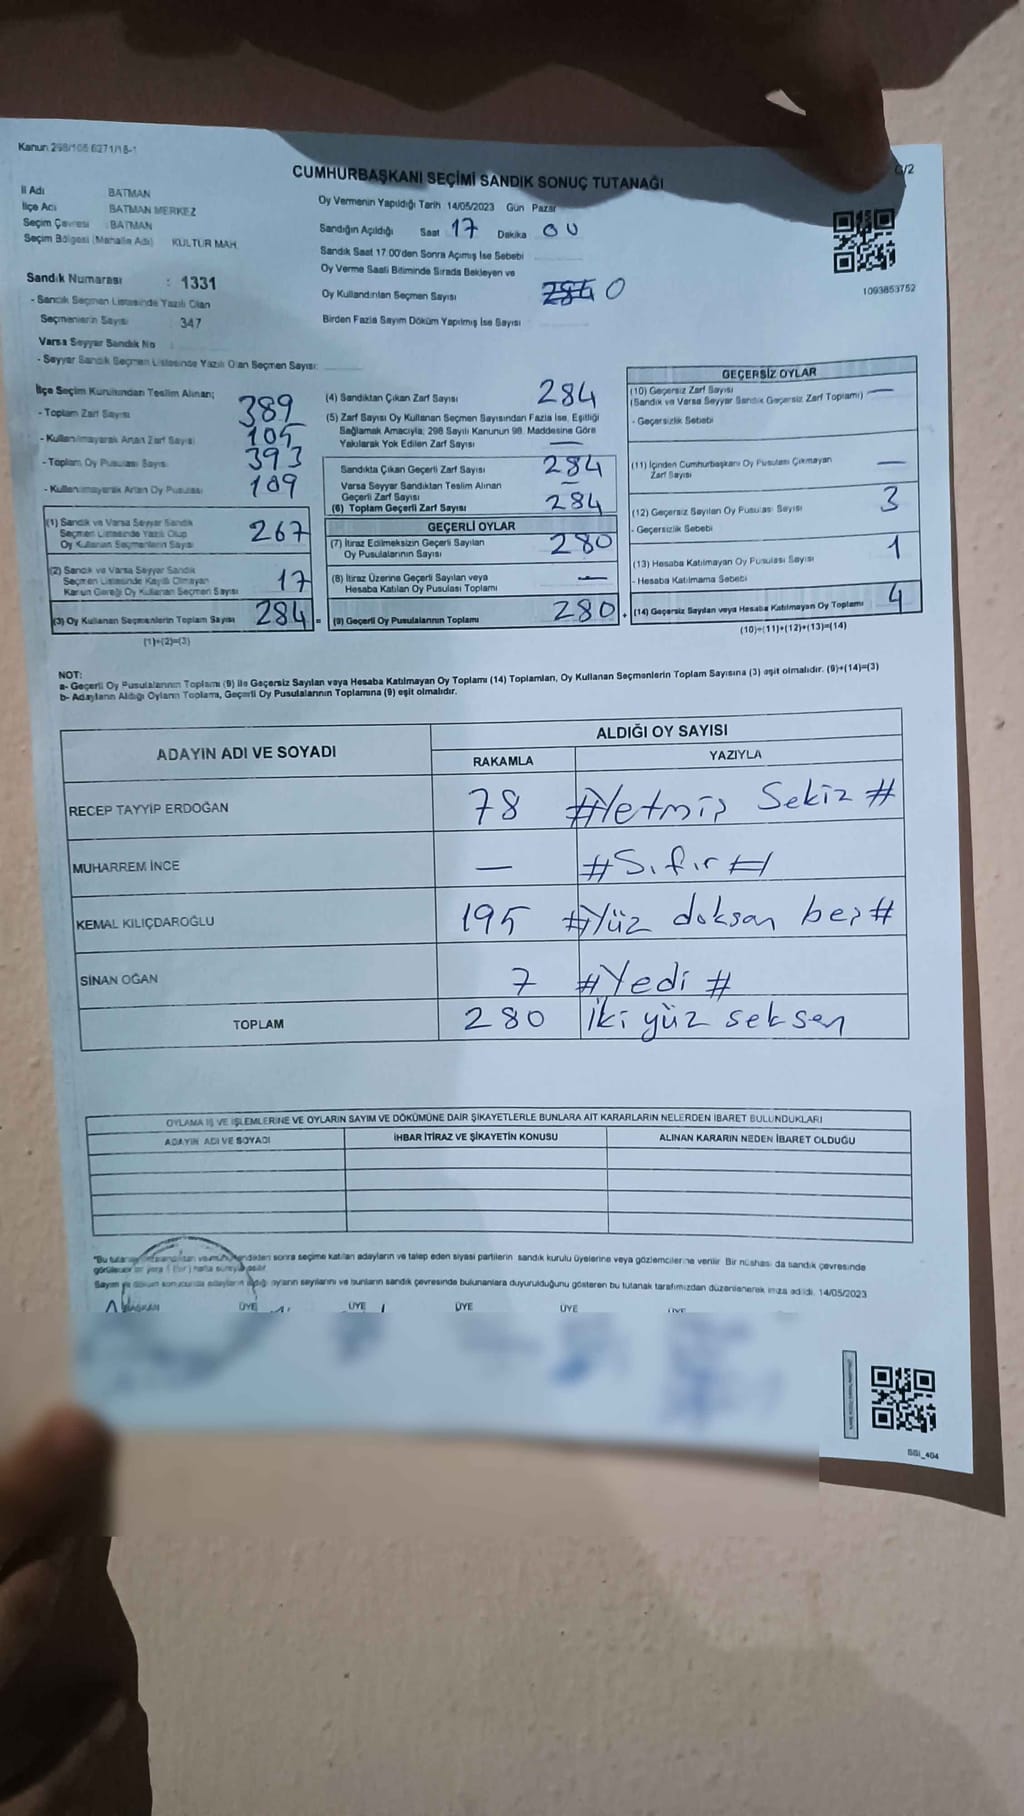 Kanun 298/105 6271/18-1
C/2
CUMHURBAŞKANI SEÇİMİ SANDIK SONUÇ TUTANAĞI
İl Adı BATMAN
İlçe Adı BATMAN MERKEZ
Seçim Çevresi : BATMAN
Seçim Bölgesi (Mahalle Adı) KÜLTÜR MAH.
Sandık Numarası : 1331
- Sandık Seçmen Listesinde Yazılı Olan
Seçmenlerin Sayısı 347
Varsa Seyyar Sandık No
- Seyyar Sandık Seçmen Listesinde Yazılı Olan Seçmen Sayısı:
Oy Vermenin Yapıldığı Tarih 14/05/2023 Gün Pazar
Sandığın Açıldığı Saat 17 Dakika 00
Sandık Saat 17:00'den Sonra Açılmış İse Sebebi
Oy Verme Saati Bitiminde Sırada Bekleyen ve
Oy Kullandırılan Seçmen Sayısı 284 0
Birden Fazla Sayım Döküm Yapılmış İse Sayısı
1093853752
İlçe Seçim Kurulundan Teslim Alınan;
- Toplam Zarf Sayısı 389
- Kullanılmayarak Artan Zarf Sayısı 105
- Toplam Oy Pusulası Sayısı 393
- Kullanılmayarak Artan Oy Pusulası 109
(1) Sandık ve Varsa Seyyar Sandık
Seçmen Listesinde Yazılı Olup
Oy Kullanan Seçmenlerin Sayısı 267
(2) Sandık ve Varsa Seyyar Sandık
Seçmen Listesinde Kayıtlı Olmayan
Kanun Gereği Oy Kullanan Seçmen Sayısı 17
(3) Oy Kullanan Seçmenlerin Toplam Sayısı 284 =
(1)+(2)=(3)
(4) Sandıktan Çıkan Zarf Sayısı 284
(5) Zarf Sayısı Oy Kullanan Seçmen Sayısından Fazla İse, Eşitliği
Sağlamak Amacıyla, 298 Sayılı Kanunun 98. Maddesine Göre
Yakılarak Yok Edilen Zarf Sayısı —
Sandıkta Çıkan Geçerli Zarf Sayısı 284
Varsa Seyyar Sandıktan Teslim Alınan
Geçerli Zarf Sayısı —
(6) Toplam Geçerli Zarf Sayısı 284
GEÇERLİ OYLAR
(7) İtiraz Edilmeksizin Geçerli Sayılan
Oy Pusulalarının Sayısı 280
(8) İtiraz Üzerine Geçerli Sayılan veya
Hesaba Katılan Oy Pusulası Toplamı —
(9) Geçerli Oy Pusulalarının Toplamı 280 +
GEÇERSİZ OYLAR
(10) Geçersiz Zarf Sayısı
(Sandık ve Varsa Seyyar Sandık Geçersiz Zarf Toplamı) —
- Geçersizlik Sebebi
(11) İçinden Cumhurbaşkanı Oy Pusulası Çıkmayan
Zarf Sayısı —
(12) Geçersiz Sayılan Oy Pusulası Sayısı 3
- Geçersizlik Sebebi
(13) Hesaba Katılmayan Oy Pusulası Sayısı 1
- Hesaba Katılmama Sebebi
(14) Geçersiz Sayılan veya Hesaba Katılmayan Oy Toplamı 4
(10)+(11)+(12)+(13)=(14)
NOT:
a- Geçerli Oy Pusulalarının Toplamı (9) ile Geçersiz Sayılan veya Hesaba Katılmayan Oy Toplamı (14) Toplamları, Oy Kullanan Seçmenlerin Toplam Sayısına (3) eşit olmalıdır. (9)+(14)=(3)
b- Adayların Aldığı Oyların Toplamı, Geçerli Oy Pusulalarının Toplamına (9) eşit olmalıdır.
ADAYIN ADI VE SOYADI ALDIĞI OY SAYISI
RAKAMLA YAZIYLA
RECEP TAYYİP ERDOĞAN 78 #Yetmiş Sekiz #
MUHARREM İNCE — #Sıfır#
KEMAL KILIÇDAROĞLU 195 #Yüz doksan beş#
SİNAN OĞAN 7 #Yedi #
TOPLAM 280 iki yüz seksen
OYLAMA İŞ VE İŞLEMLERİNE VE OYLARIN SAYIM VE DÖKÜMÜNE DAİR ŞİKAYETLERLE BUNLARA AİT KARARLARIN NELERDEN İBARET BULUNDUKLARI
ADAYIN ADI VE SOYADI İHBAR İTİRAZ VE ŞİKAYETİN KONUSU ALINAN KARARIN NEDEN İBARET OLDUĞU
*Bu sonra seçime katılan adayların ve talep eden siyasi partilerin sandık kurulu üyelerine veya gözlemcilerine verilir. Bir nüshası da sandık çevresinde
hafta süreyle asılır.
Sayım ve döküm sonucunda adayların aldığı oyların sayılarını ve bunların sandık çevresinde bulunanlara duyurulduğunu gösteren bu tutanak tarafımızdan düzenlenerek imza edildi. 14/05/2023
BAŞKAN ÜYE ÜYE ÜYE ÜYE ÜYE
SSİ_404